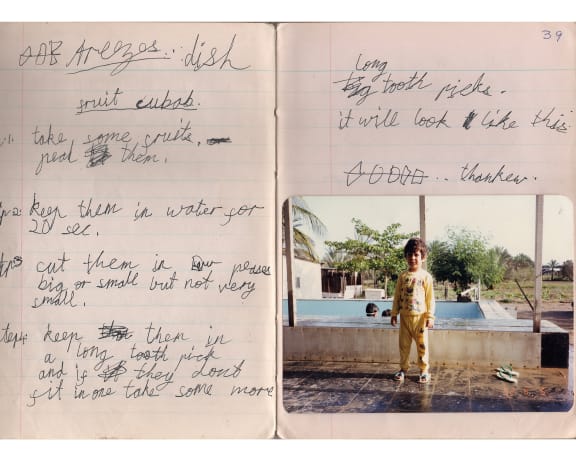 Areezes.. dish
fruit cubab.
take some fruits,
peal them.
keep them in water for
20 sec.
cut them in pesses
big or small but not very
small.
step4: keep them in
a long tooth pick
and if they dont
fit in one take some more
39
long
tooth picks.
it will look like this
.. thankew.